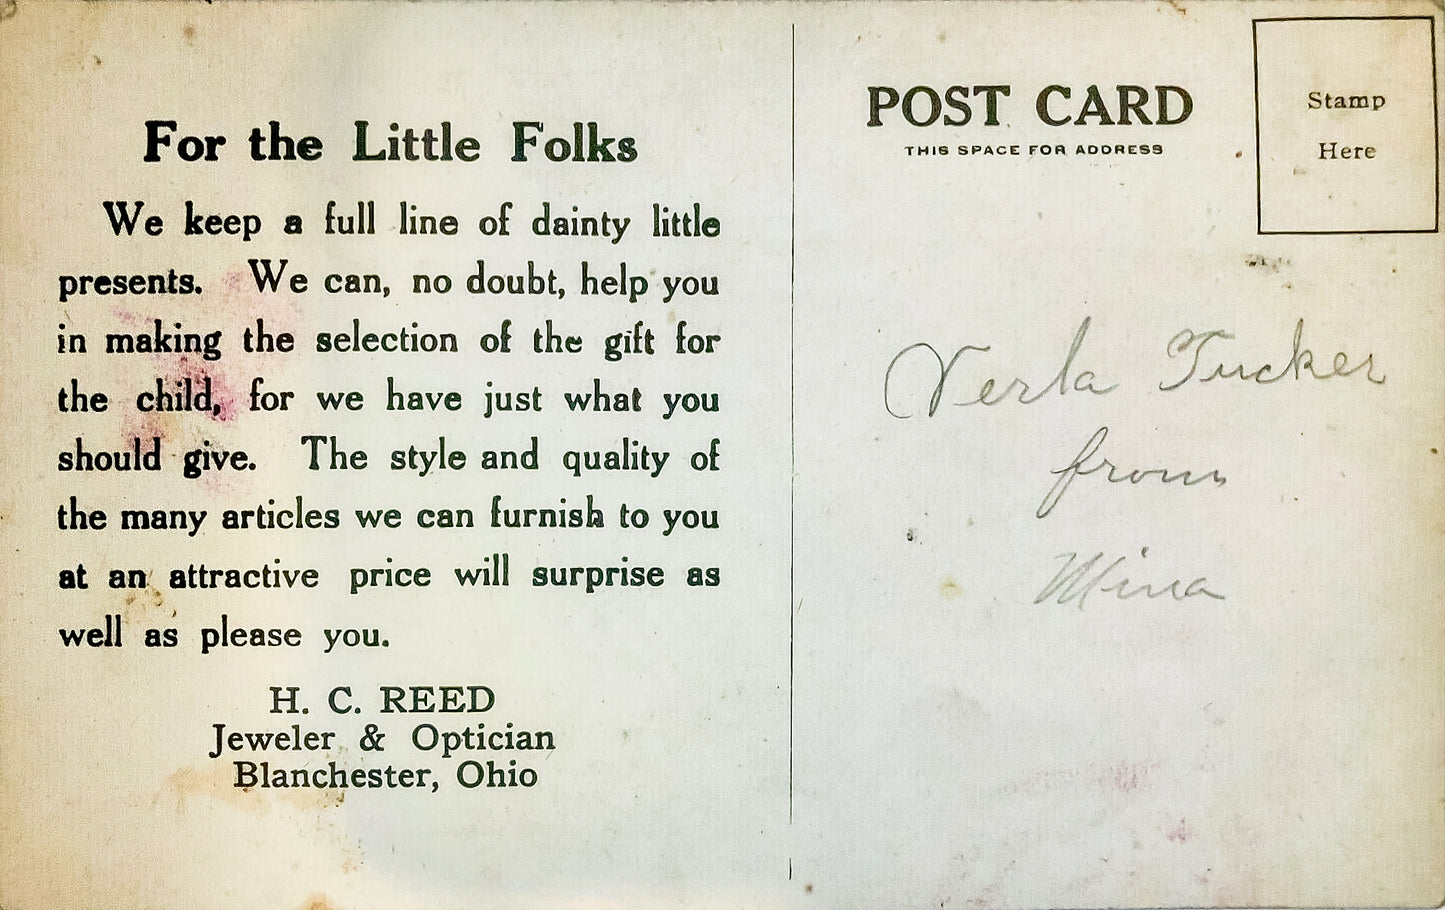 For the Little Folks
We keep a full line of dainty little
presents. We can, no doubt, help you
in making the selection of the gift for
the child, for we have just what you
should give. The style and quality of
the many articles we can furnish to you
at an attractive price will surprise as
well as please you.
H. C. REED
Jeweler & Optician
Blanchester, Ohio
POST CARD
THIS SPACE FOR ADDRESS
Stamp
Here
Verla Tucker
from
Mina